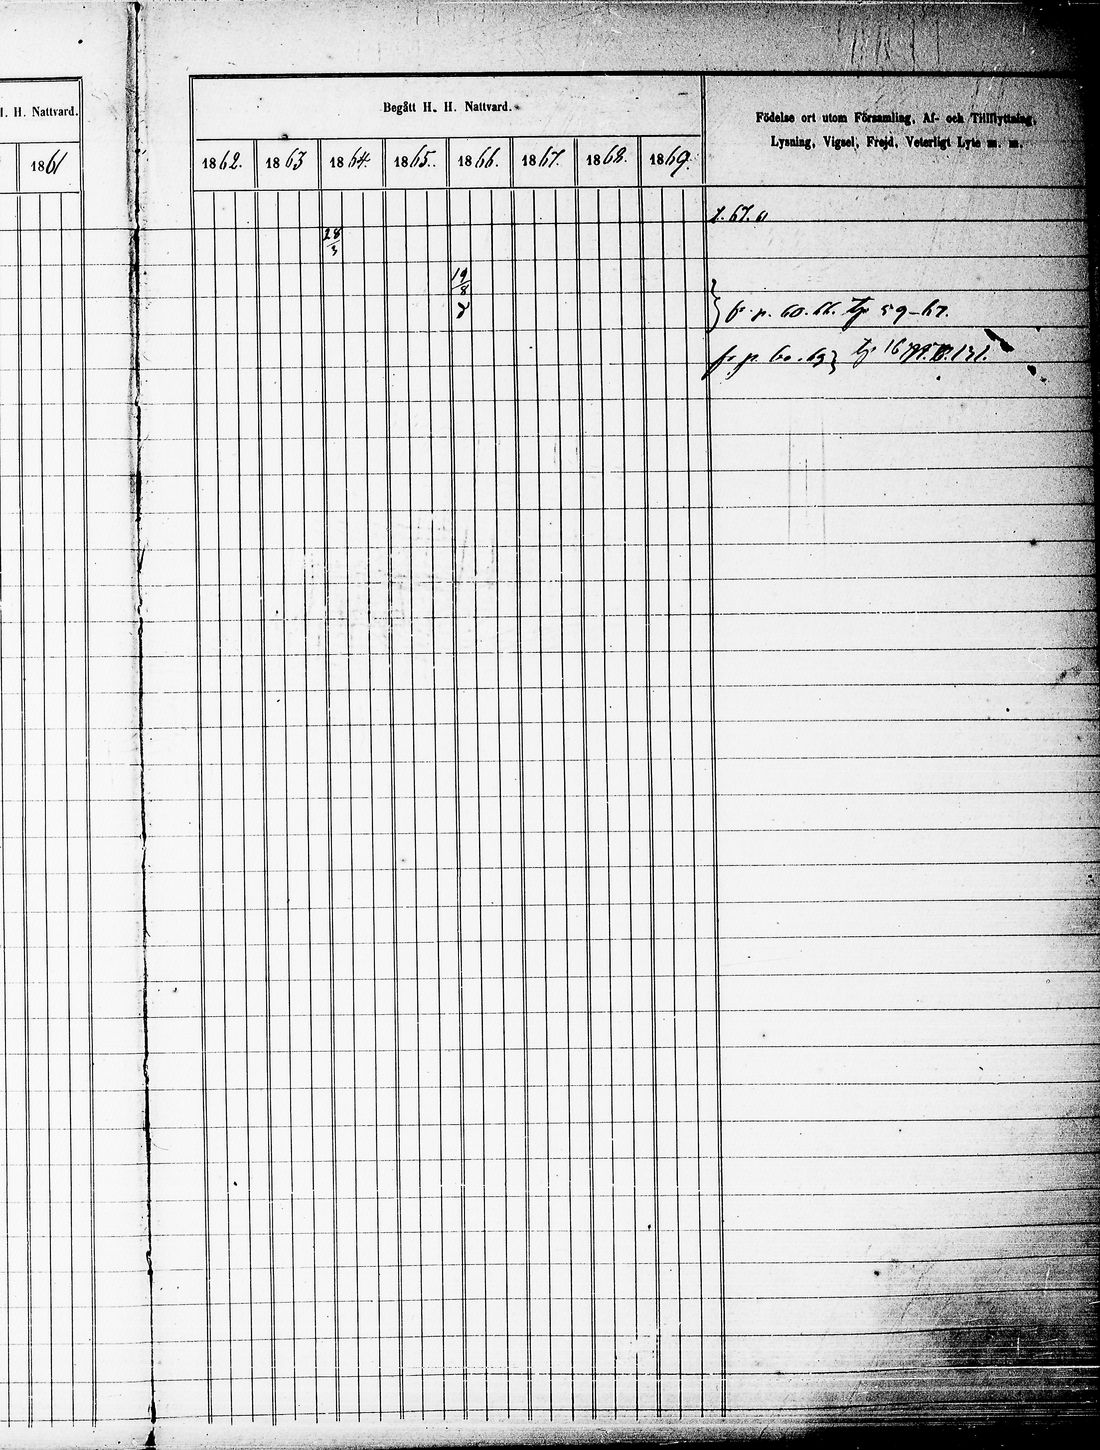 H. H. Nattvard.
1861
Begått H. H. Nattvard.
1862. 1863 1864. 1865. 1866. 1867. 1868. 1869.
Födelse ort utom Församling, Af- och Tillflyttning,
Lysning, Vigsel, Frejd, Veterligt Lyte m. m.
t. 67.
28/3
19/8
fr. p. 60. 66. 59-67.
fr p. 60. 69} 16